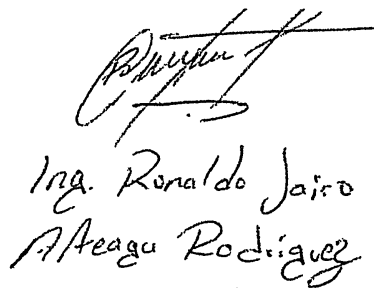 Ing. Ronaldo Jairo
Ateagu Rodríguez